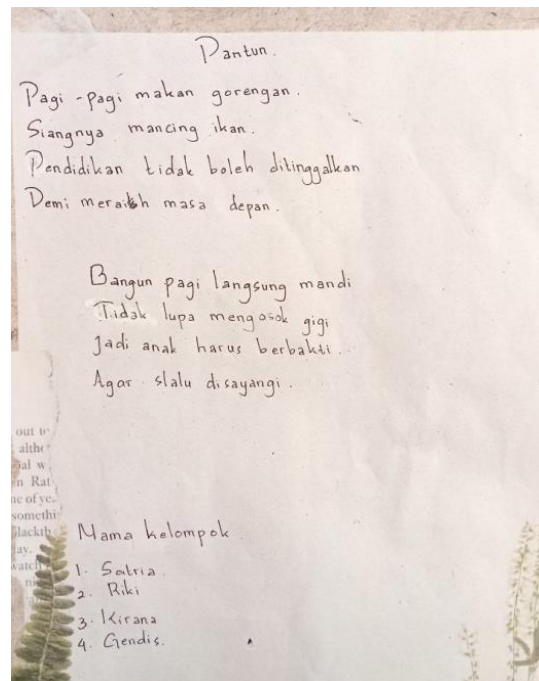 Pantun.
Pagi-pagi makan gorengan.
Siangnya mancing ikan.
Pendidikan tidak boleh ditinggalkan
Demi meraih masa depan.
Bangun pagi langsung mandi
Tidak lupa mengosok gigi
Jadi anak harus berbakti.
Agar slalu disayangi.
out
Rat
Nama kelompok
1. Satria
2. Riki
3. Kirana
4. Gendis.